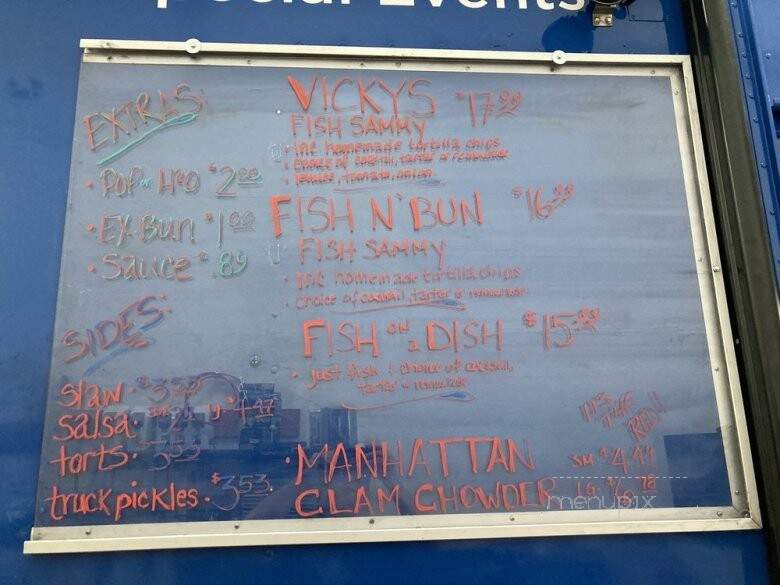 Special Events
EXTRAS:
• POP or H2O $2.00
• EX. Bun $1.00
• Sauce $.89
SIDES:
slaw • $3.53
salsa •
torts • 3.53
truck pickles • $3.53
VICKYS
FISH SAMMY
• inc homemade tortilla chips
• choice of cocktail, tarter or remoulade
• lettuce, tomato, onion
FISH N' BUN
FISH SAMMY
• inc homemade tortilla chips
• choice of cocktail, tarter or remoulade
FISH ON a DISH
• just fish & choice of cocktail,
tarter or remoulade
• MANHATTAN SM $4.47
CLAM CHOWDER LG $6.78
menupix